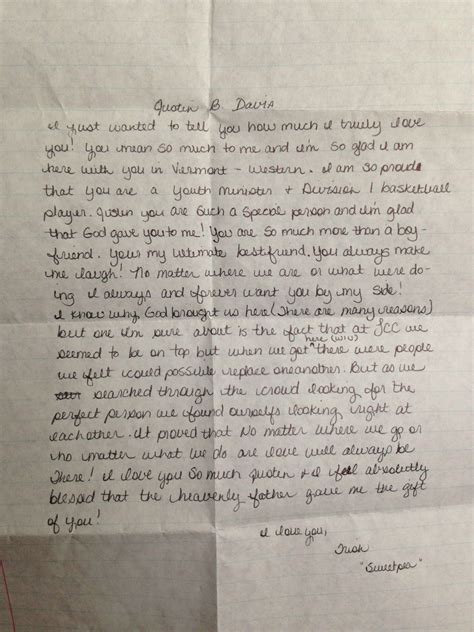 Justin B. Davis
I just wanted to tell you how much I truly love
you! You mean so much to me and I'm so glad I am
here with you in Viermont - Western. I am so proud
that you are a youth minister + Division 1 basketball
player. Justin you are such a special person and I'm glad
that God gave you to me! You are so much more than a boy-
friend. Your my ultimate bestfriend. You always make
me laugh! No matter where we are or what were do-
ing I always and forever want you by my side!
I know why God brought us here (there are many reasons)
but one I'm sure about is the fact that at JCC we
seemed to be on top but when we got here (WIU) there were people
we felt could possible replace oneanother. But as we
searched through the crowd looking for the
perfect person we found ourselfs looking right at
eachother. It proved that No matter where we go or
no matter what we do are love will always be
There! I love you so much Justin + I feel absolutly
blessed that the heavenly father gave me the gift
of you!
I love you,
Trish
"Sweetpea"